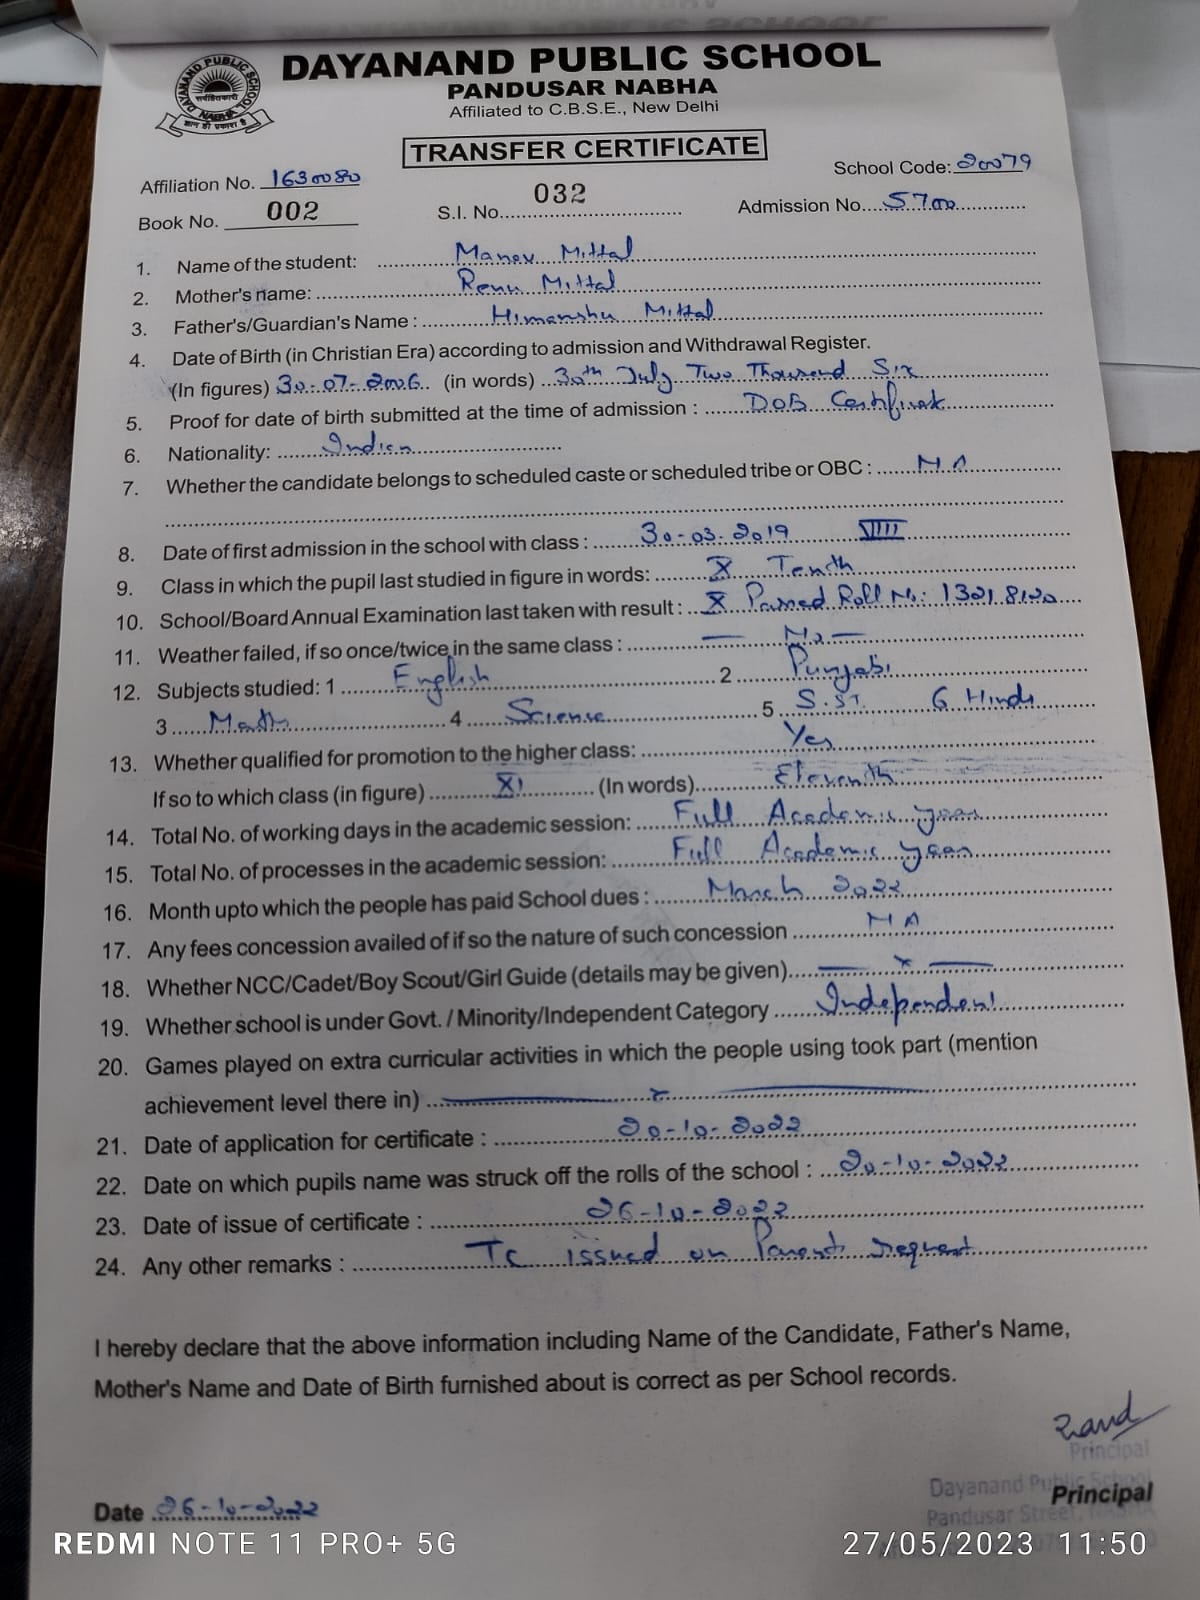 DAYANAND PUBLIC SCHOOL
PANDUSAR NABHA
Affiliated to C.B.S.E., New Delhi
DAYANAND PUBLIC SCHOOL
NABHA
TRANSFER CERTIFICATE
Affiliation No. 1630080 School Code: 20079
Book No. 002 S.I. No. 032 Admission No. 5700
1. Name of the student: Manav Mittal
2. Mother's name: Renu Mittal
3. Father's/Guardian's Name : Himanshu Mittal
4. Date of Birth (in Christian Era) according to admission and Withdrawal Register.
(In figures) 30-07-2006 (in words) 30th July Two Thousand Six
5. Proof for date of birth submitted at the time of admission : DOB Certificate
6. Nationality: Indian
7. Whether the candidate belongs to scheduled caste or scheduled tribe or OBC : NA
8. Date of first admission in the school with class : 30-03-2019 VIII
9. Class in which the pupil last studied in figure in words: X Tenth
10. School/Board Annual Examination last taken with result : X Passed Roll No:
11. Weather failed, if so once/twice in the same class : — No —
12. Subjects studied: 1 English 2 Punjabi
3 Math 4 Science 5 S.ST. 6 Hindi
13. Whether qualified for promotion to the higher class: Yes
If so to which class (in figure) XI (In words) Eleventh
14. Total No. of working days in the academic session: Full Academic year
15. Total No. of processes in the academic session: Full Academic year
16. Month upto which the people has paid School dues : March 2022
17. Any fees concession availed of if so the nature of such concession NA
18. Whether NCC/Cadet/Boy Scout/Girl Guide (details may be given) — x —
19. Whether school is under Govt. / Minority/Independent Category Independent
20. Games played on extra curricular activities in which the people using took part (mention
achievement level there in) — x —
21. Date of application for certificate : 20-10-2022
22. Date on which pupils name was struck off the rolls of the school : 20-10-2022
23. Date of issue of certificate : 26-10-2022
24. Any other remarks : TC issued on Parents request
I hereby declare that the above information including Name of the Candidate, Father's Name,
Mother's Name and Date of Birth furnished about is correct as per School records.
Principal
Dayanand Public School
Principal
Pandusar Street,
Date 26-10-2022
REDMI NOTE 11 PRO+ 5G 27/05/2023 11:50